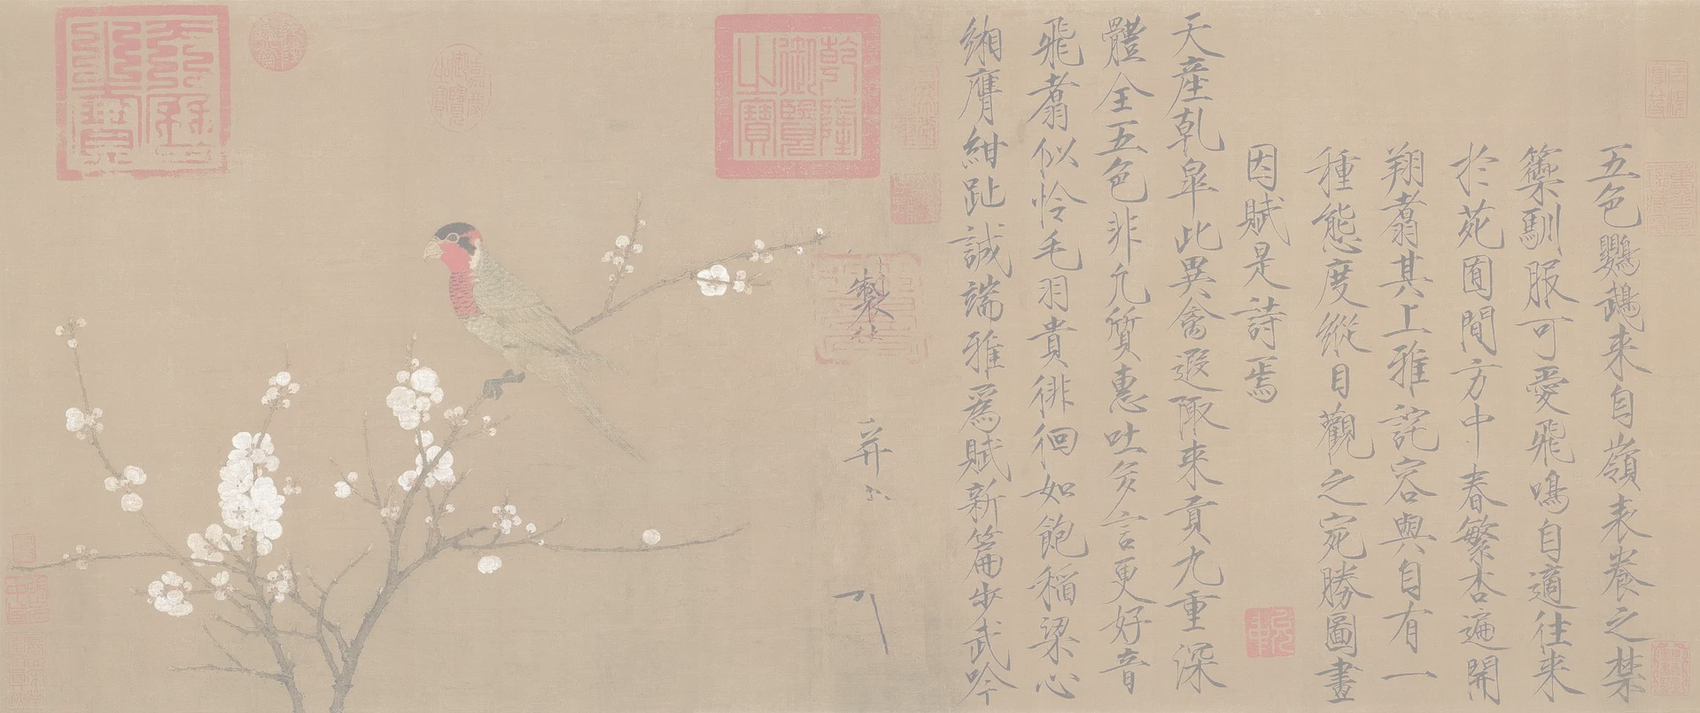 五色鸚鵡来自嶺表養之禁
籞馴服可愛飛鳴自適往来
於苑囿間方中春繁杏遍開
翔翥其上雅詫容與自有一
種態度縱目觀之宛勝圖畫
因賦是詩焉
天産乾皋此異禽遐陬来貢九重深
體全五色非凡質惠吐多言更好音
飛翥似怜毛羽貴徘徊如飽稲粱心
緗膺紺趾誠端雅爲賦新篇步武吟
製
乾隆御覽之寶
天曆之寶